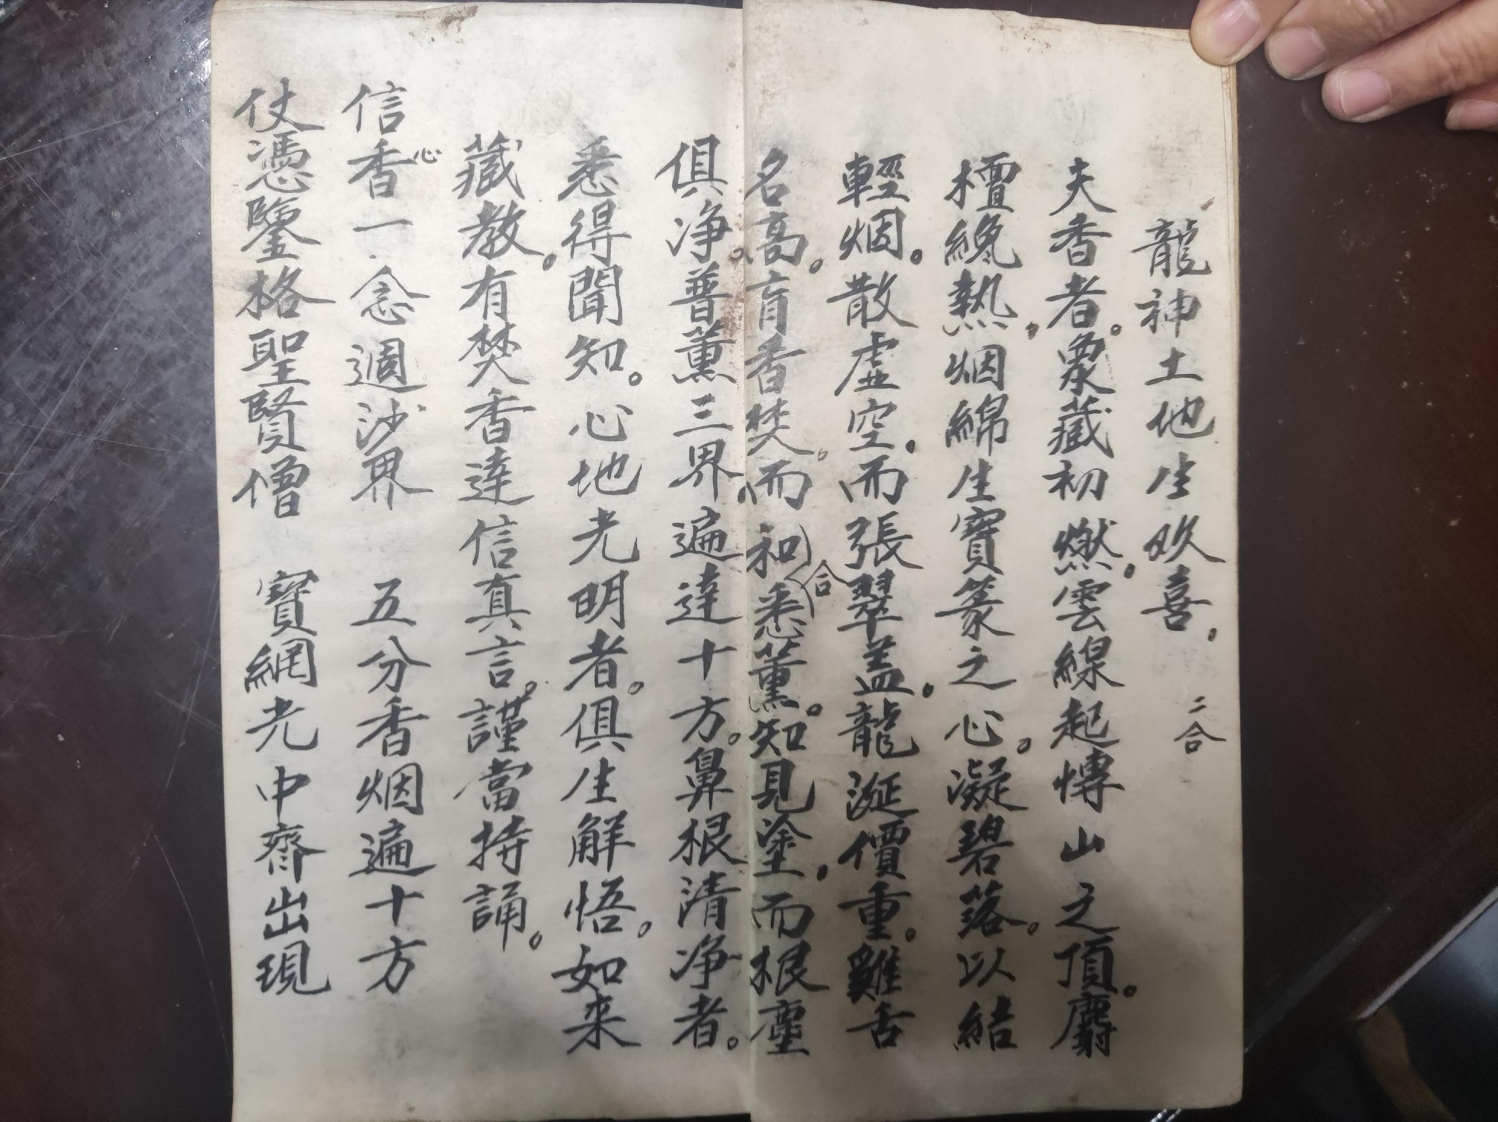 龍神土地生欢喜, 二合
夫香者。象藏初燃。雲線起愽山之頂。麝
檀纔熱,烟綿生寶篆之心。凝碧落。以結
輕烟。散虚空。而張翠盖。龍涎價重。雞舌
名高。肓香焚。而和悉合薰。知見塗,而根塵
俱净。普薰三界。遍達十方。鼻根清净者。
悉得聞知。心地光明者。俱生解悟。如来
藏教。有焚香達信真言。謹當持誦。
信香心一念週沙界 五分香烟遍十方
仗憑鑒格聖賢僧 寶網光中齊出現